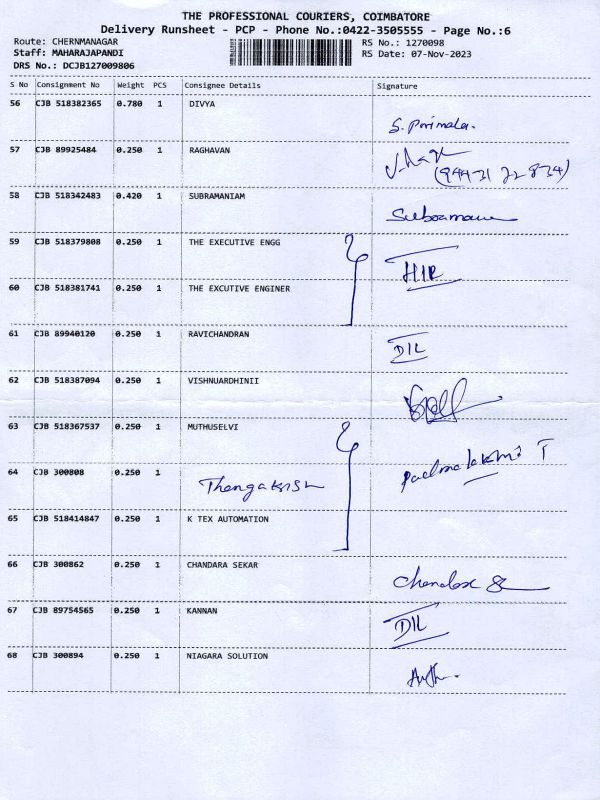 THE PROFESSIONAL COURIERS, COIMBATORE
Delivery Runsheet - PCP - Phone No.:0422-3505555 - Page No.:6
Route: CHERNMANAGAR RS No.: 1270098
Staff: MAHARAJAPANDI RS Date: 07-Nov-2023
DRS No.: DCJB127009806
S No Consignment No Weight PCS Consignee Details Signature
56 CJB 518382365 0.780 1 DIVYA
S. Porimala.
57 CJB 89925484 0.250 1 RAGHAVAN
(94431 22834)
58 CJB 518342483 0.420 1 SUBRAMANIAM
59 CJB 518379808 0.250 1 THE EXECUTIVE ENGG
HIR
60 CJB 518381741 0.250 1 THE EXCUTIVE ENGINER
61 CJB 89940120 0.250 1 RAVICHANDRAN
DIL
62 CJB 518387094 0.250 1 VISHNUARDHINII
63 CJB 518367537 0.250 1 MUTHUSELVI
Padmalakshmi T
64 CJB 300808 0.250 1
65 CJB 518414847 0.250 1 K TEX AUTOMATION
66 CJB 300862 0.250 1 CHANDARA SEKAR
67 CJB 89754565 0.250 1 KANNAN
DIL
68 CJB 300894 0.250 1 NIAGARA SOLUTION